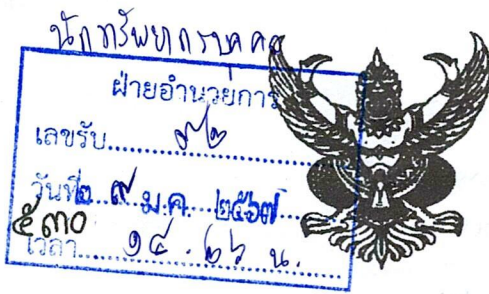 นักทรัพยากรบุคคล
ฝ่ายอำนวยการ
เลขรับ.....๙๒
วันที่ ๒ ๙ ม.ค. ๒๕๖๗
๕๓๐
เวลา.....๑๔.๒๖ น.